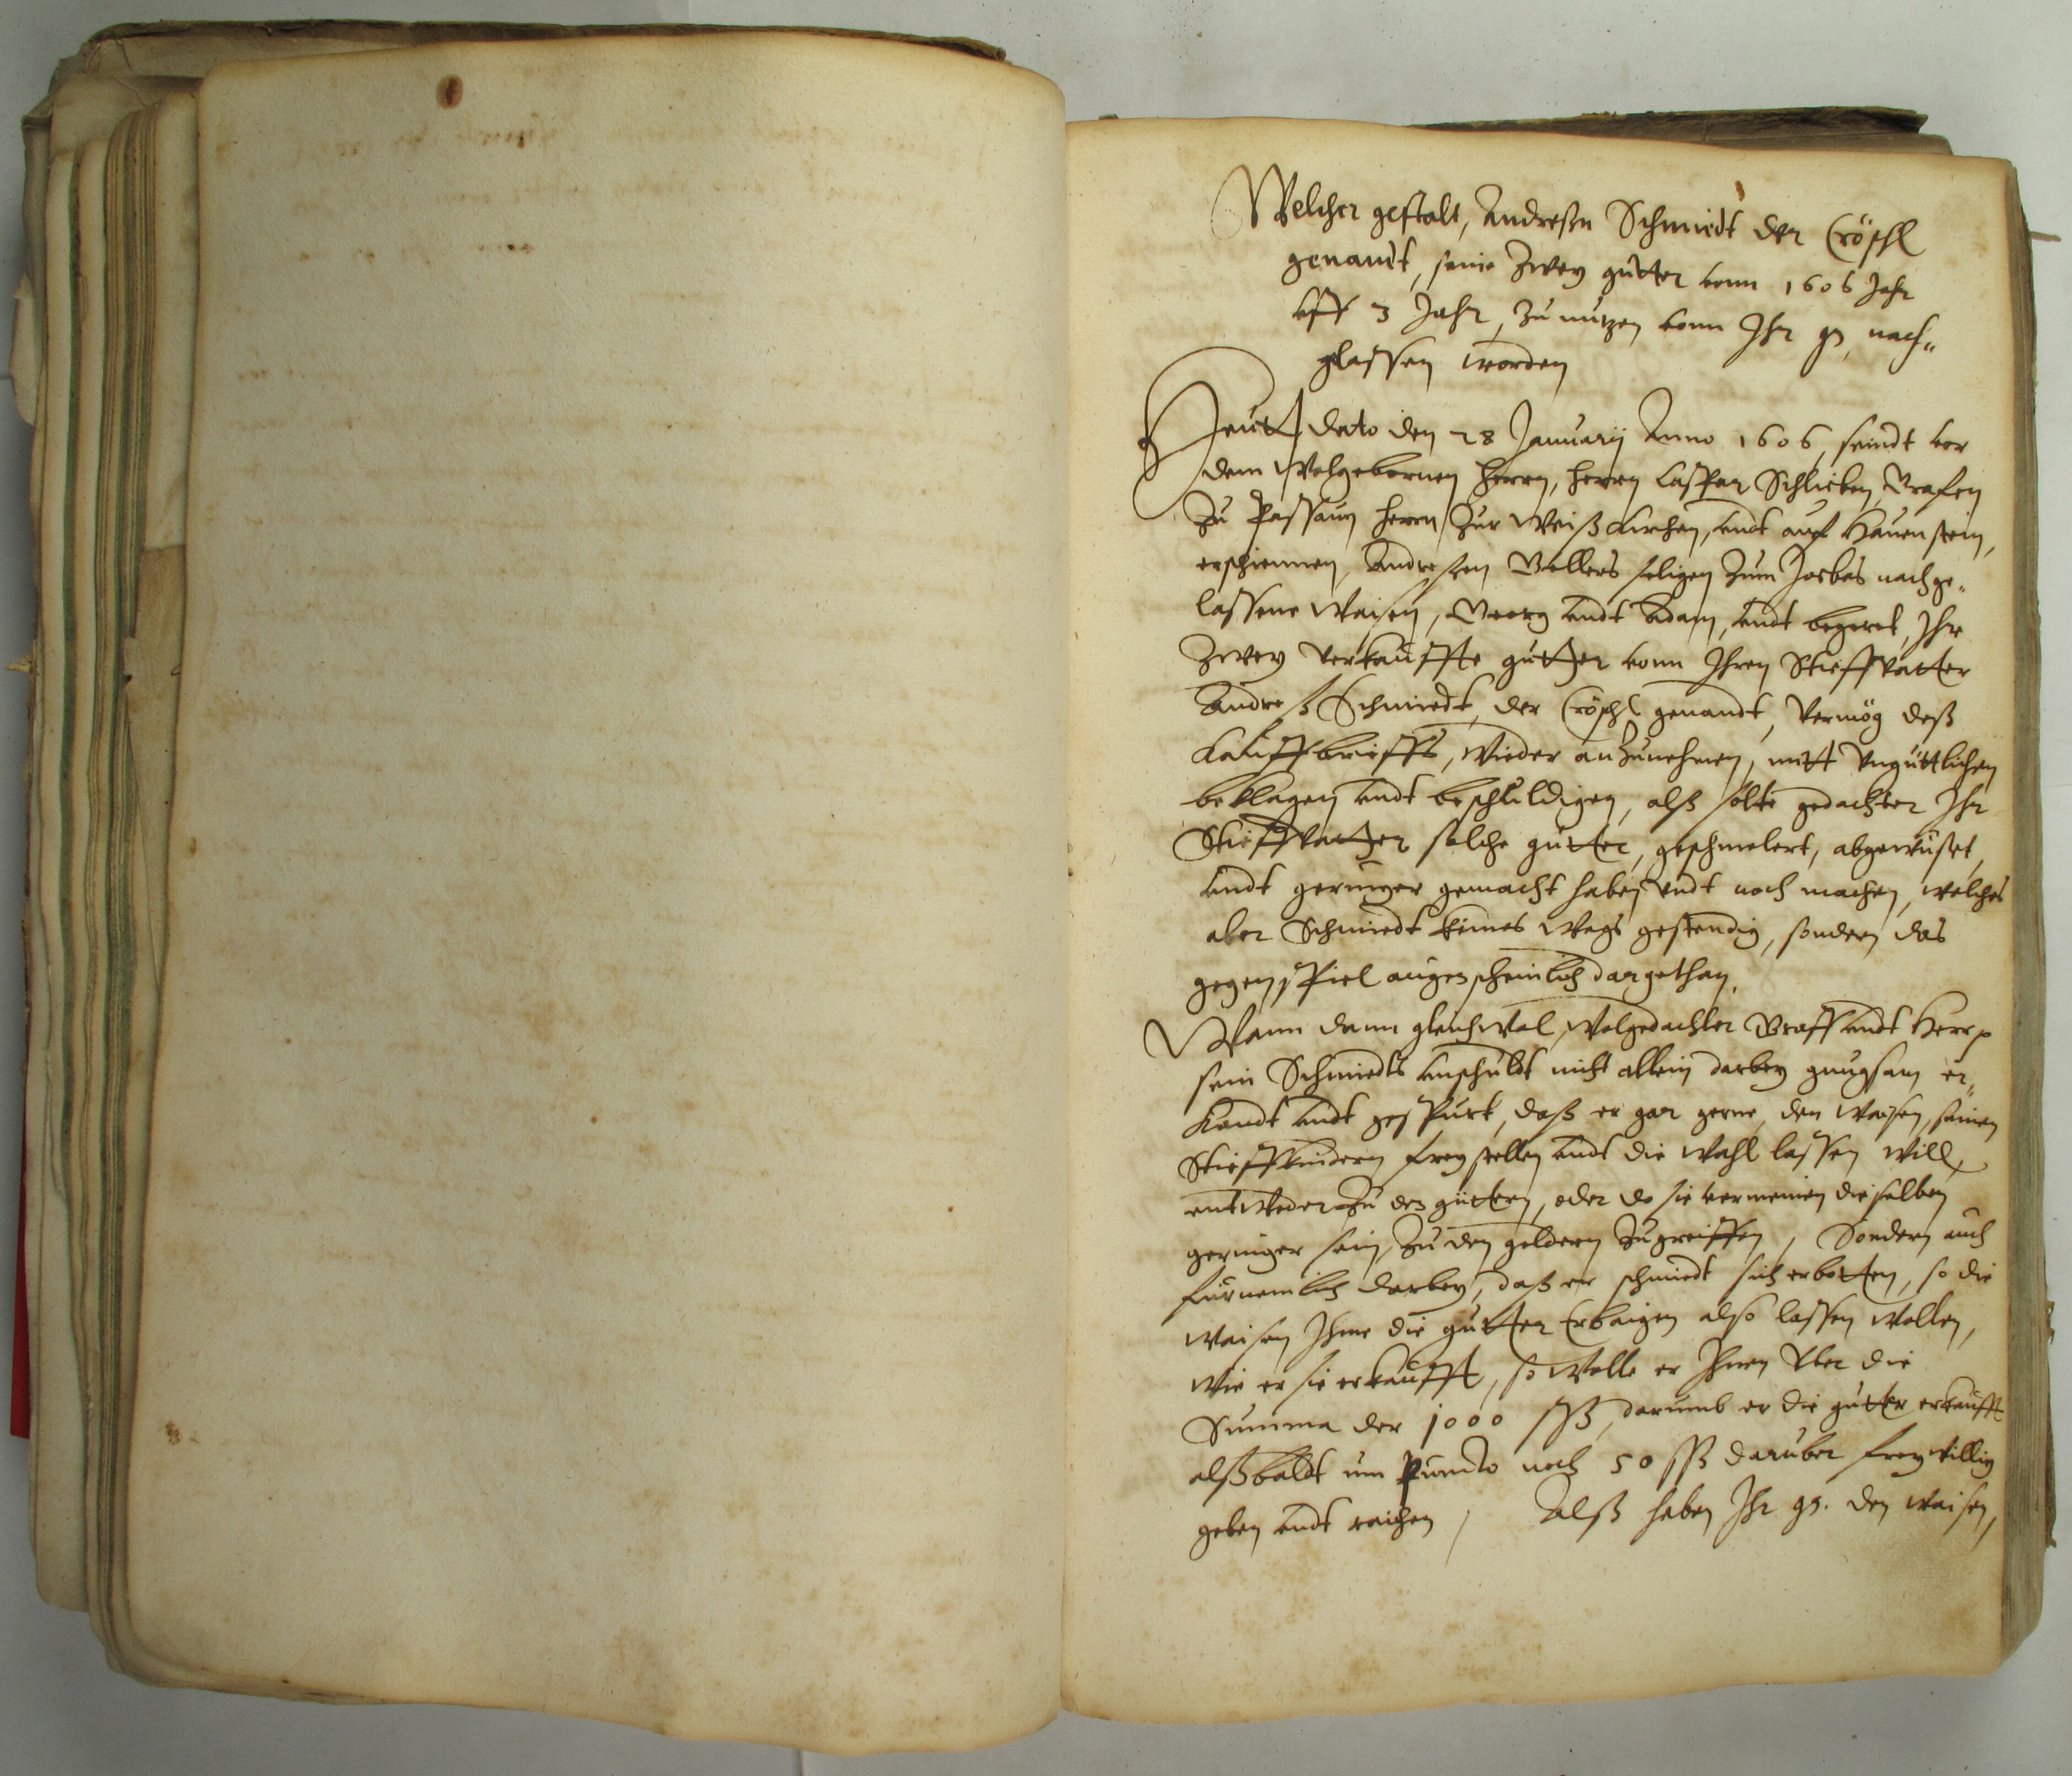 Welcher gestalt, Andreßen Schmiedt der Cröschl
genandt, seine Zwey gütter vonn 1606 Jahr
vff 3 Jahr, zu nutzen vonn Ihr gn, nach„
glassen worden
Heutt dato den 28 Januarij Anno 1606, seindt vor
dem Wohgebornen Herrn, Herrn Caspar Schlicken, Grafen
zu Passaun Herrn Zur Weißkirchen, vndt auf Hauenstein,
erschiennen, Andreßen seligen Zum nachge„
lassene Waisen, Georg vndt Adam, vndt begeret, Ihr
Zwey verkauffte gütter vonn Ihren Stieffvatter
Andreß Schmiedt, der Cröschl genandt, Vermög deß
Kauffbrieffs, Wieder anzunehmen, mitt Vngüttlichen
beklagen vndt beschuldigen, alß solte gedachter Ihr
Stieffvatter solche gütter, geschmelert, abgewüstet,
vndt geringer gemacht haben vndt noch machen, welches
aber Schmiedt keines Wegs gestendig, sondern das
gegenspiel augenscheinlich dargethan,
Wann dann gleichwol, Wolgedachter Graff vndt Herr
sein Schmiedts vnschuldt nicht allein darbey gnugsam er„
kandt vndt gespürt, daß er gar gerne, den Waisen, seinen
Stieffkindern frey stellen vndt die Wahl lassen will,
entweder zu den güttern, oder do sie vermeinen dieselben
geringer sein, zu den geldern zugreiffen, Sondern auch
fürnemlich darbey, daß er schmiedt sich erbotten, so die
Waisen Ihme die gütter also lassen wollen,
wie er sie erkaufft, so Wolle er Ihnen Vber die
Summa der 1000 ßß, darumb er die gütter erkaufft
alßbaldt im Puncto noch 50 ßß darüber freywillig
geben vndt raichen, Alß haben Ihr gn. den Waisen,